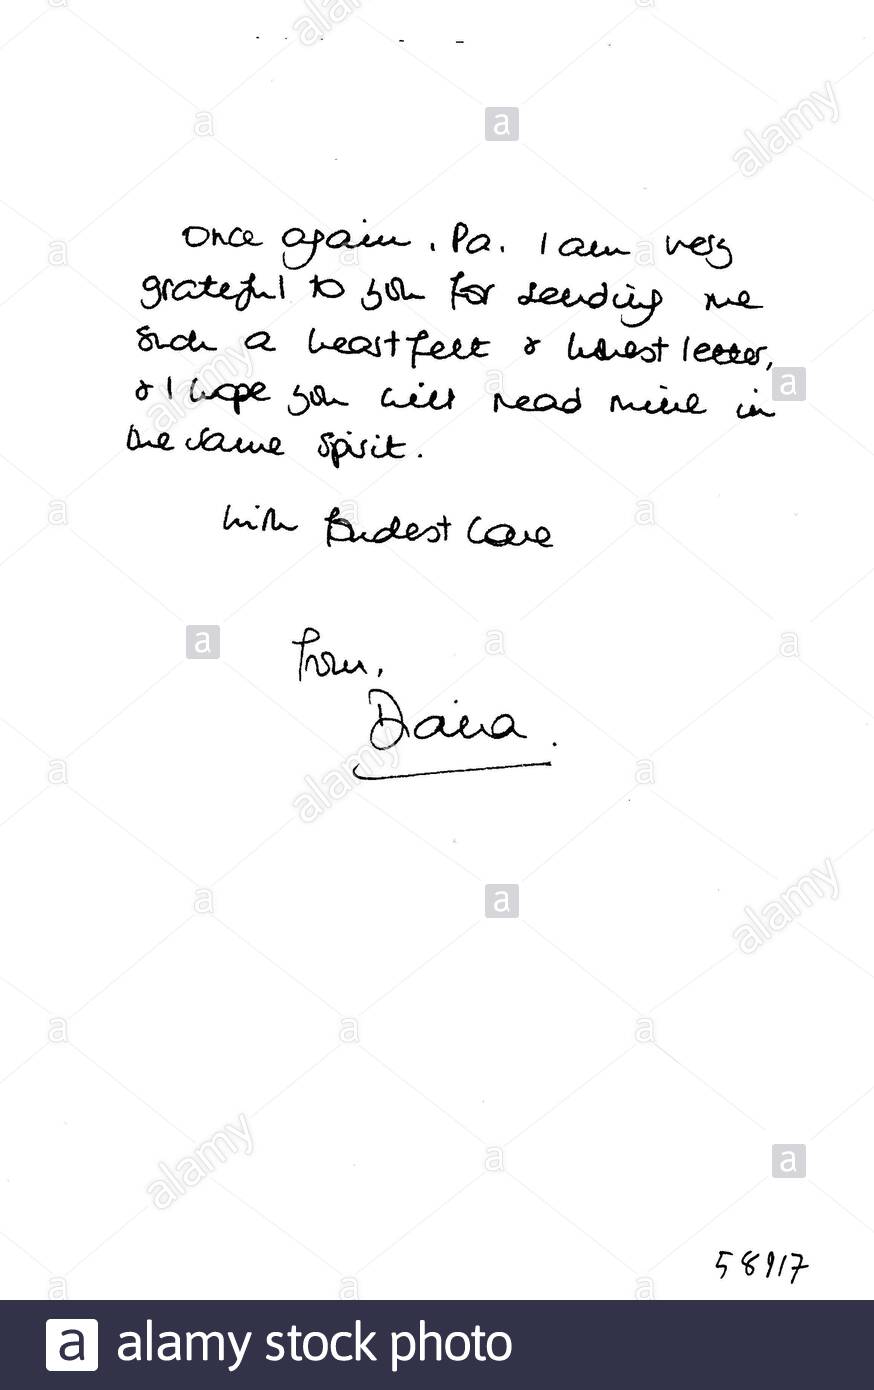 Once again, Pa, I am very
grateful to you for sending me
such a heartfelt & honest letter,
& I hope you will read mine in
the same spirit.
With fondest love
from,
Diana.
58917
a alamy stock photo